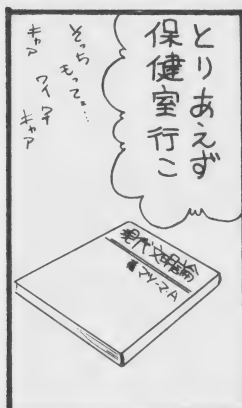 とりあえず
保健室行こ
そっち
もってよ…
キャア
ワイワイ
キャア
現代文明論